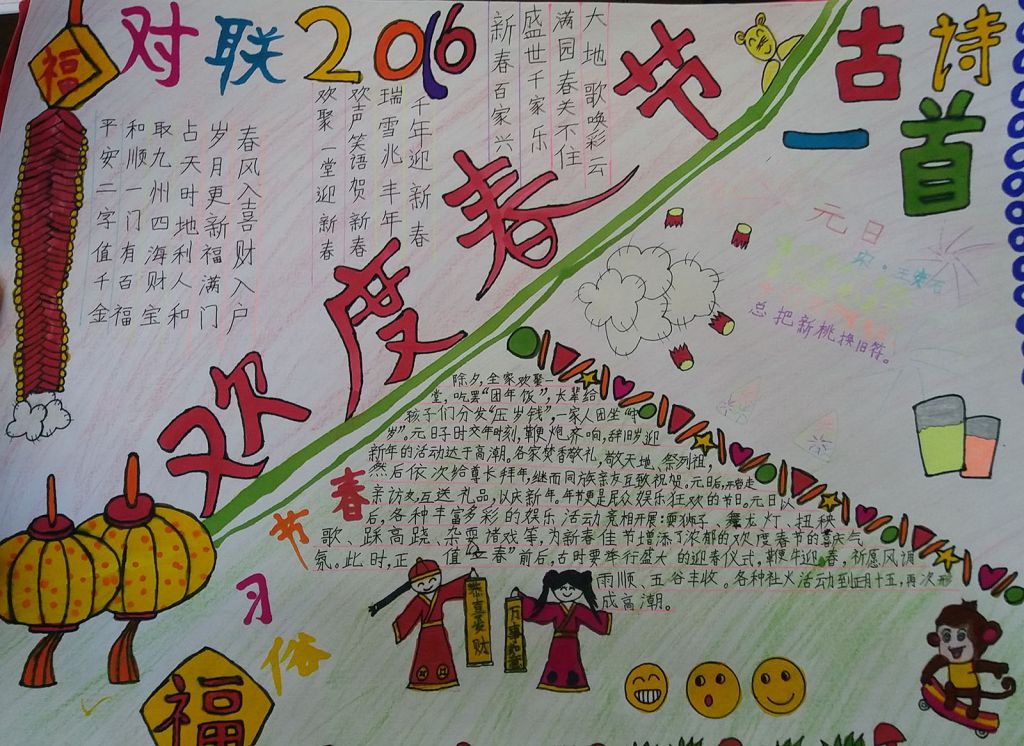 福
对联2016
春风入喜财入户
岁月更新福满门
占天时地利人和
取九州四海财宝
和顺一门有百福
平安二字值千金
千年迎新春
瑞雪兆丰年
欢声笑语贺新春
欢聚一堂迎新春
大地歌唤彩云
满园春关不住
盛世千家乐
新春百家兴
欢度春节
古诗
一首
元日
宋·王安石
总把新桃换旧符。
春节习俗
除夕,全家欢聚一
堂,吃罢“团年饭”,长辈给
孩子们分发“压岁钱”,一家人团坐“守
岁”。元日子时交年时刻,鞭炮齐响,辞旧岁迎
新年的活动达于高潮。各家焚香敬礼,敬天地、祭列祖,
然后依次给尊长拜年,继而同族亲友互致祝贺。元日后,开始走
亲访友,互送礼品,以庆新年。年节更是民众娱乐狂欢的节日。元日以
后,各种丰富多彩的娱乐活动竞相开展:耍狮子、舞龙灯、扭秧
歌、踩高跷、杂耍诸戏等,为新春佳节增添了浓郁的欢度春节的喜庆气
氛。此时,正值“立春”前后,古时要举行盛大的迎春仪式,鞭牛迎春,祈愿风调
雨顺、五谷丰收。各种社火活动到正月十五,再次形
成高潮。
恭喜发财
万事如意
福